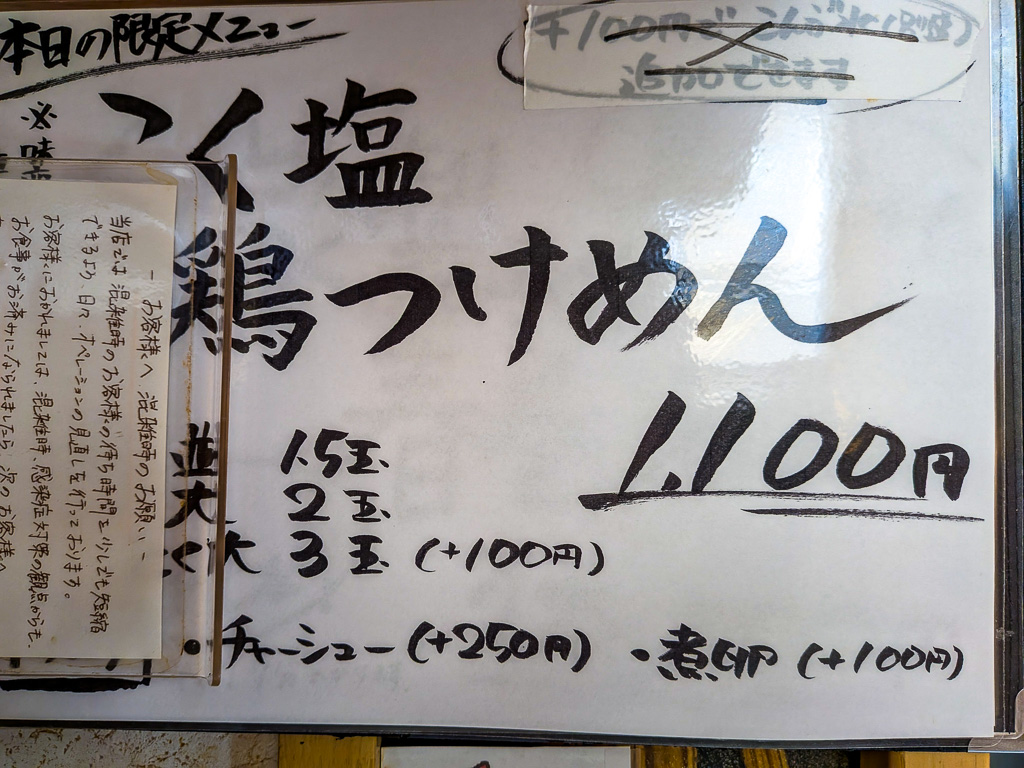 本日の限定メニュー
+100円で
追加できます
こく塩
鶏つけめん
1,100円
並 1.5玉
大 2玉
3玉 (+100円)
・チャーシュー (+250円) ・煮卵 (+100円)
- お客様へ、混雑時のお願い -
当店では混雑時のお客様の待ち時間を少しでも短縮
できるよう、日々、オペレーションの見直しを行っております。
お客様におかれましては、混雑時、感染症対策の観点からも、
お食事がお済みになられましたら、次のお客様へ